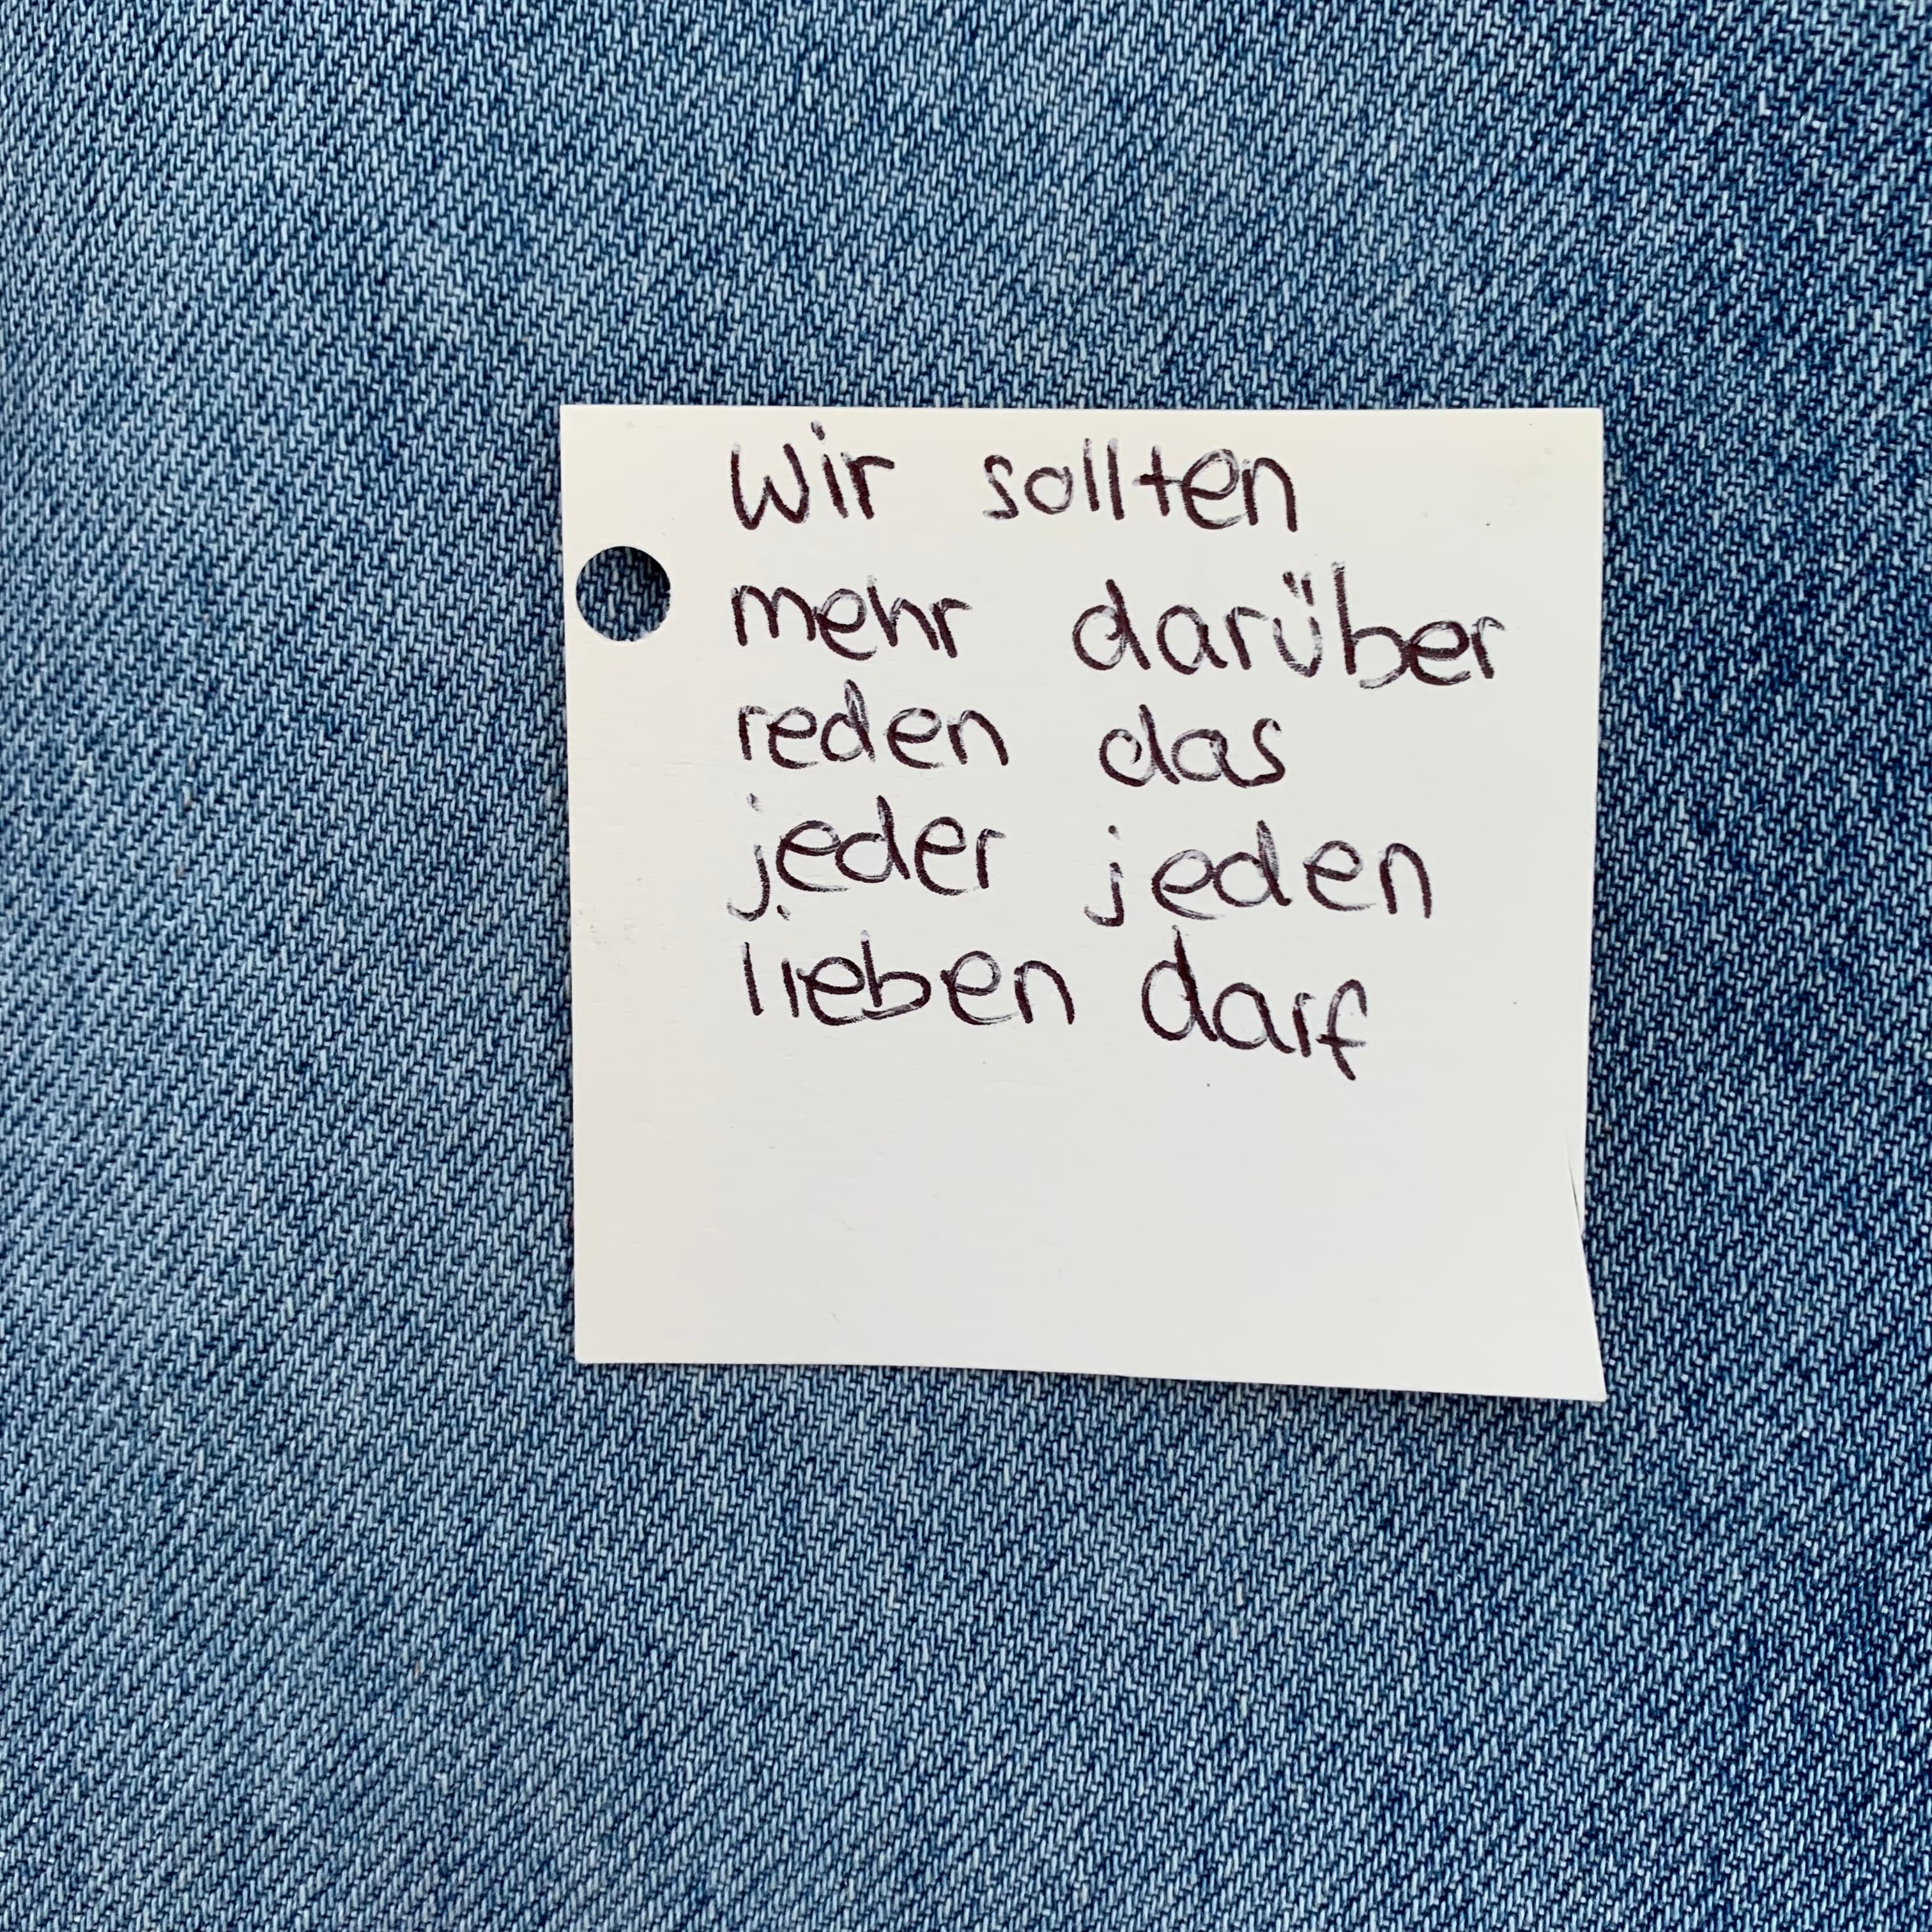 Wir sollten
mehr darüber
reden das
jeder jeden
lieben darf